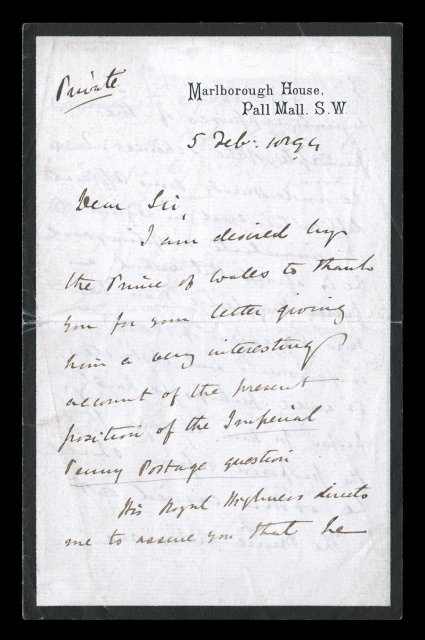 Private
Marlborough House,
Pall Mall. S.W.
5 Feb: 1894
Dear Sir,
I am desired by
the Prince of Wales to thank
you for your letter giving
him a very interesting
account of the present
position of the Imperial
Penny Postage question
His Royal Highness directs
me to assure you that he